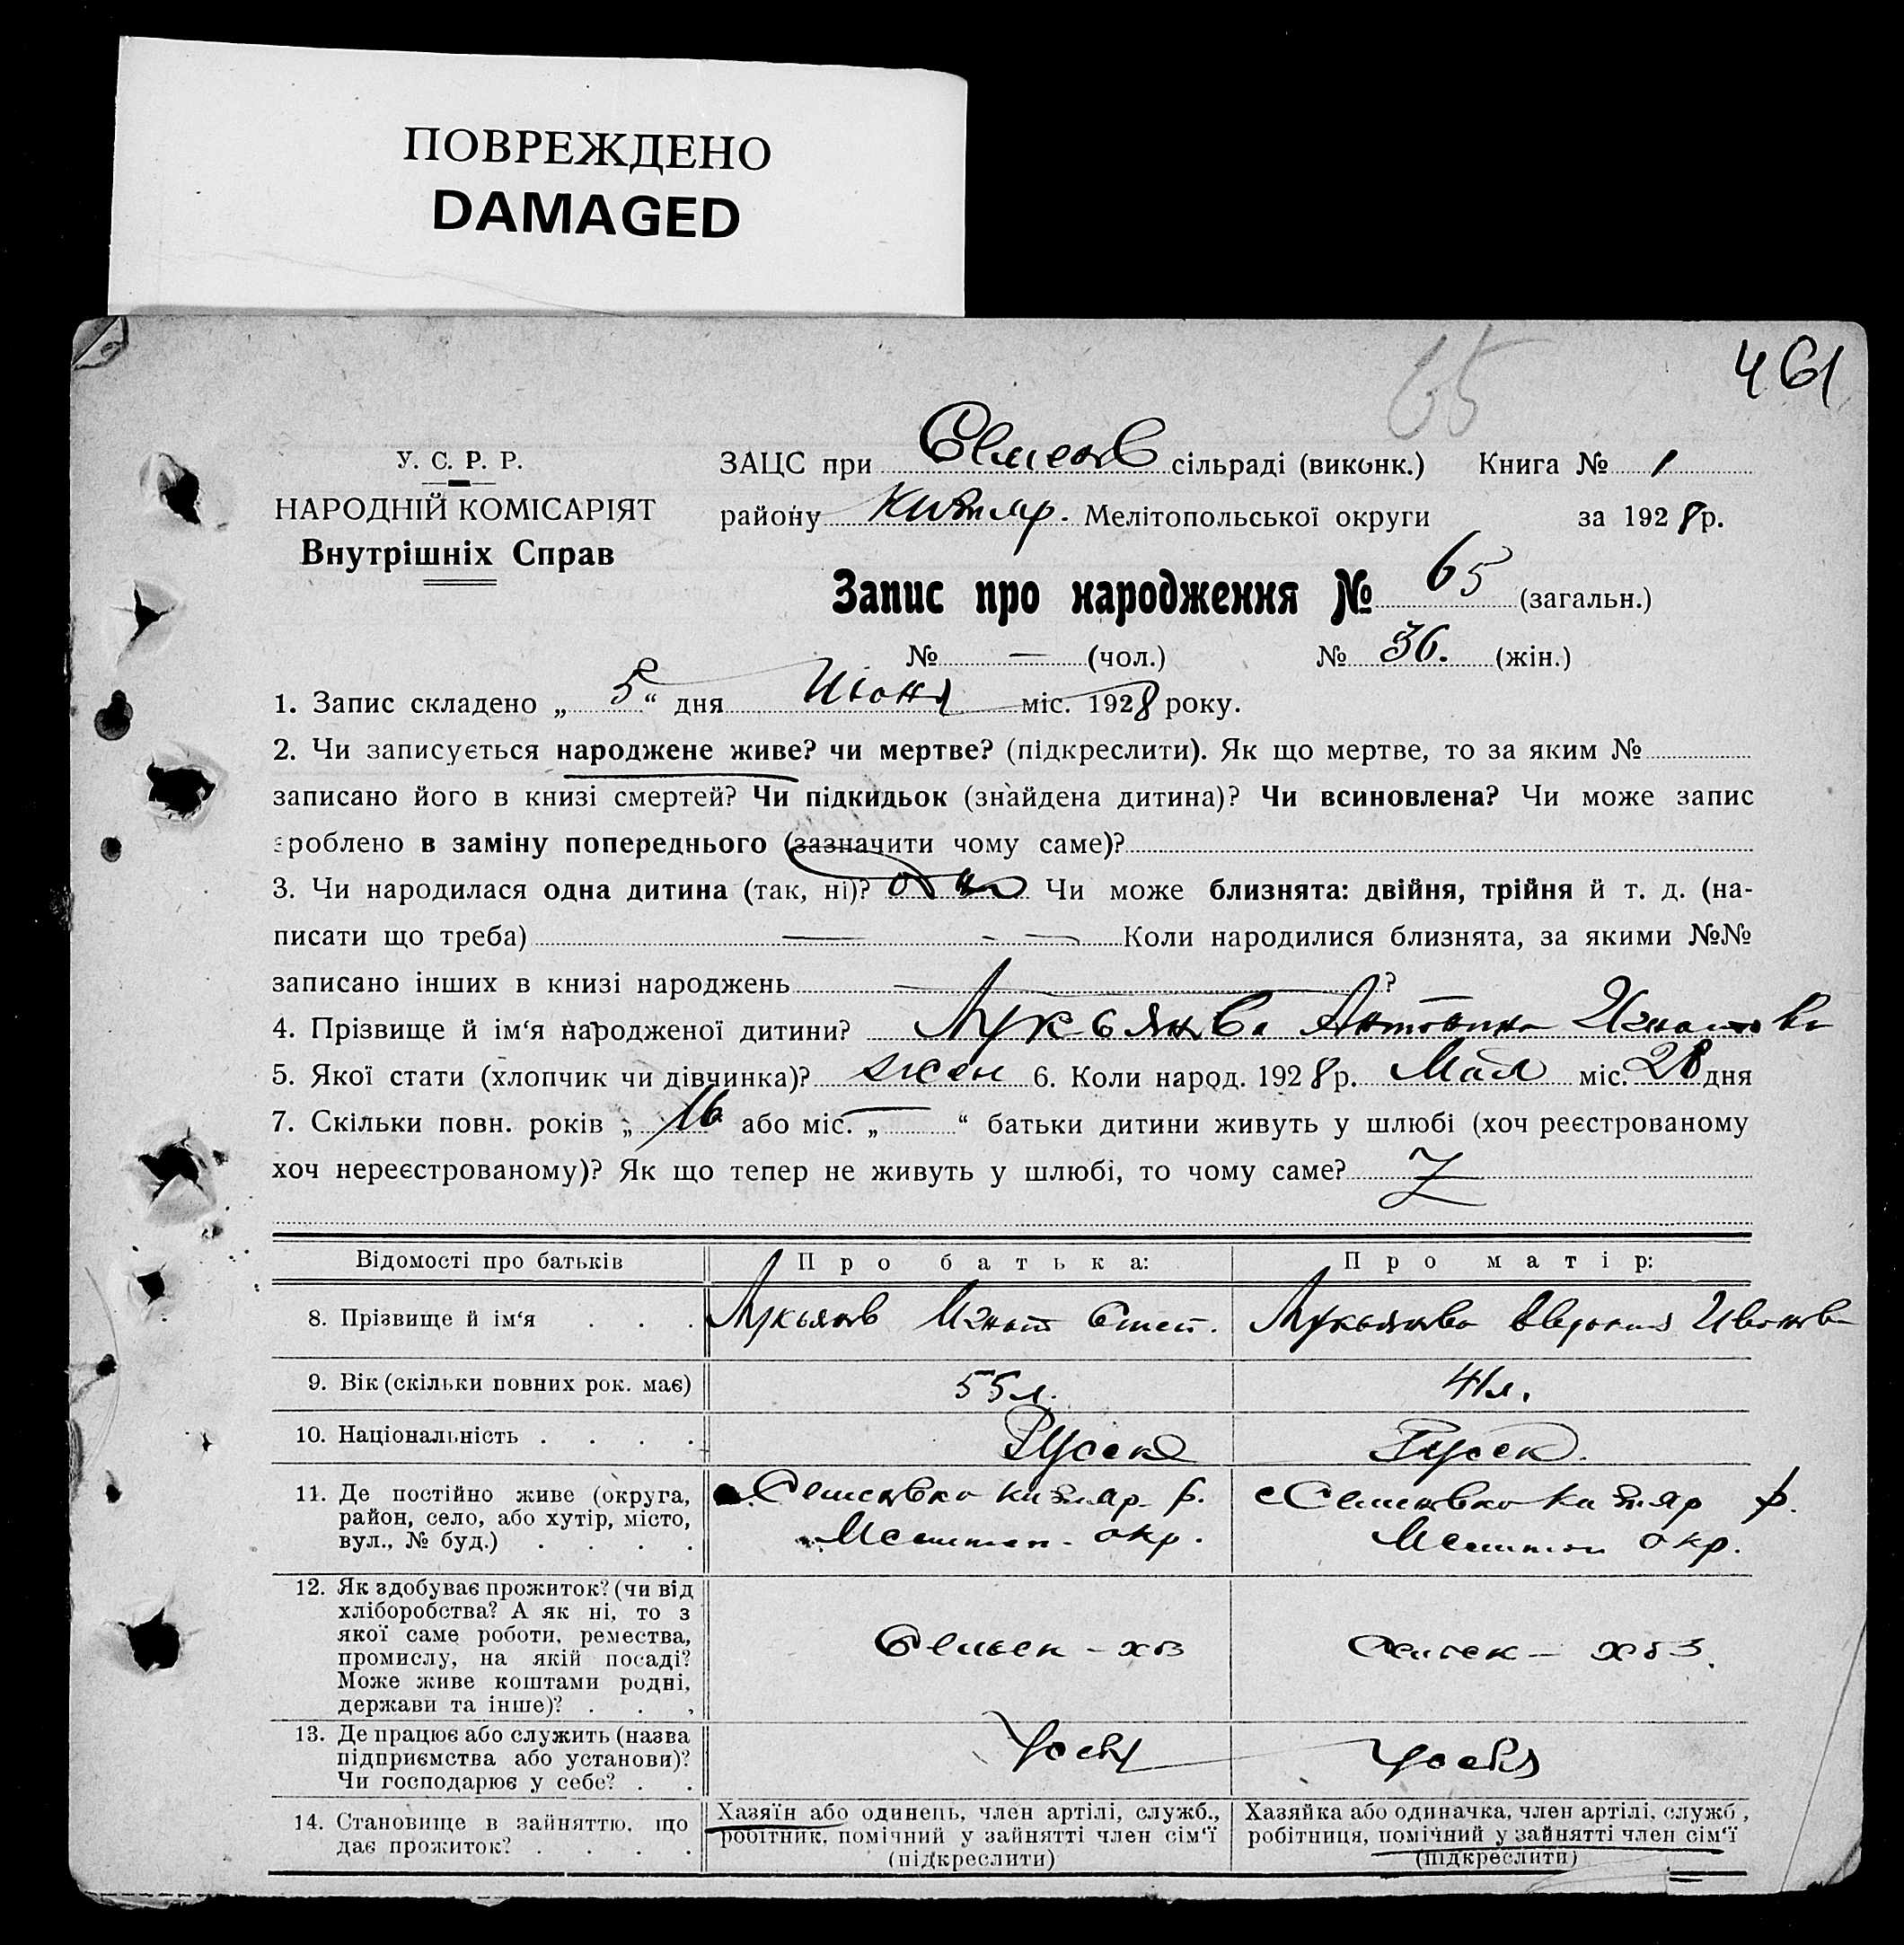 ПОВРЕЖДЕНО
DAMAGED
65
461
У. С. Р. Р.
НАРОДНІЙ КОМІСАРІЯТ
Внутрішніх Справ
ЗАЦС при Семенов сільраді (виконк.) Книга № 1
району Мелітопольської округи за 1928 р.
Запис про народження № 65 (загальн.)
№ — (чол.) № 36. (жін.)
1. Запис складено „ 5 “ дня Июня міс. 1928 року.
2. Чи записується народжене живе? чи мертве? (підкреслити). Як що мертве, то за яким №
записано його в книзі смертей? Чи підкидьок (знайдена дитина)? Чи всиновлена? Чи може запис
зроблено в заміну попереднього (зазначити чому саме)?
3. Чи народилася одна дитина (так, ні)? одна Чи може близнята: двійня, трійня й т. д. (на-
писати що треба) — - — Коли народилися близнята, за якими №№
записано інших в книзі народжень — ?
4. Прізвище й ім‘я народженої дитини? Лукьянова Антонина Игнатова
5. Якої стати (хлопчик чи дівчинка)? жен 6. Коли народ. 1928 р. Мая міс. 28 дня
7. Скільки повн. років „ 16 або міс. „ — “ батьки дитини живуть у шлюбі (хоч реєстрованому
хоч нереєстрованому)? Як що тепер не живуть у шлюбі, то чому саме?
Відомості про батьків Про батька: Про матір:
8. Прізвище й ім‘я . . . Лукьянов Игнат Степ. Лукьянова Иванова
9. Вік (скільки повних рок. має) 55 л. 41 л.
10. Національність . . . . Русск Русск.
11. Де постійно живе (округа,
район, село, або хутір, місто,
вул., № буд.) . . . .
Семеновка р.
Мелитоп. окр.
с Семеновка р.
Мелитоп окр.
12. Як здобуває прожиток? (чи від
хліборобства? А як ні, то з
якої саме роботи, ремества,
промислу, на якій посаді?
Може живе коштами родні,
держави та інше)? . . .
Сельск - хоз
Сельск - хоз.
13. Де працює або служить (назва
підприємства або установи)?
Чи господарює у себе? . .
У себя
У себя
14. Становище в зайняттю, що
дає прожиток? . . . .
Хазяїн або одинець, член артілі, служб.,
робітник, помічний у зайнятті член сім‘ї
(підкреслити)
Хазяйка або одиначка, член артілі, служб.,
робітниця, помічний у зайнятті член сім‘ї
(підкреслити)